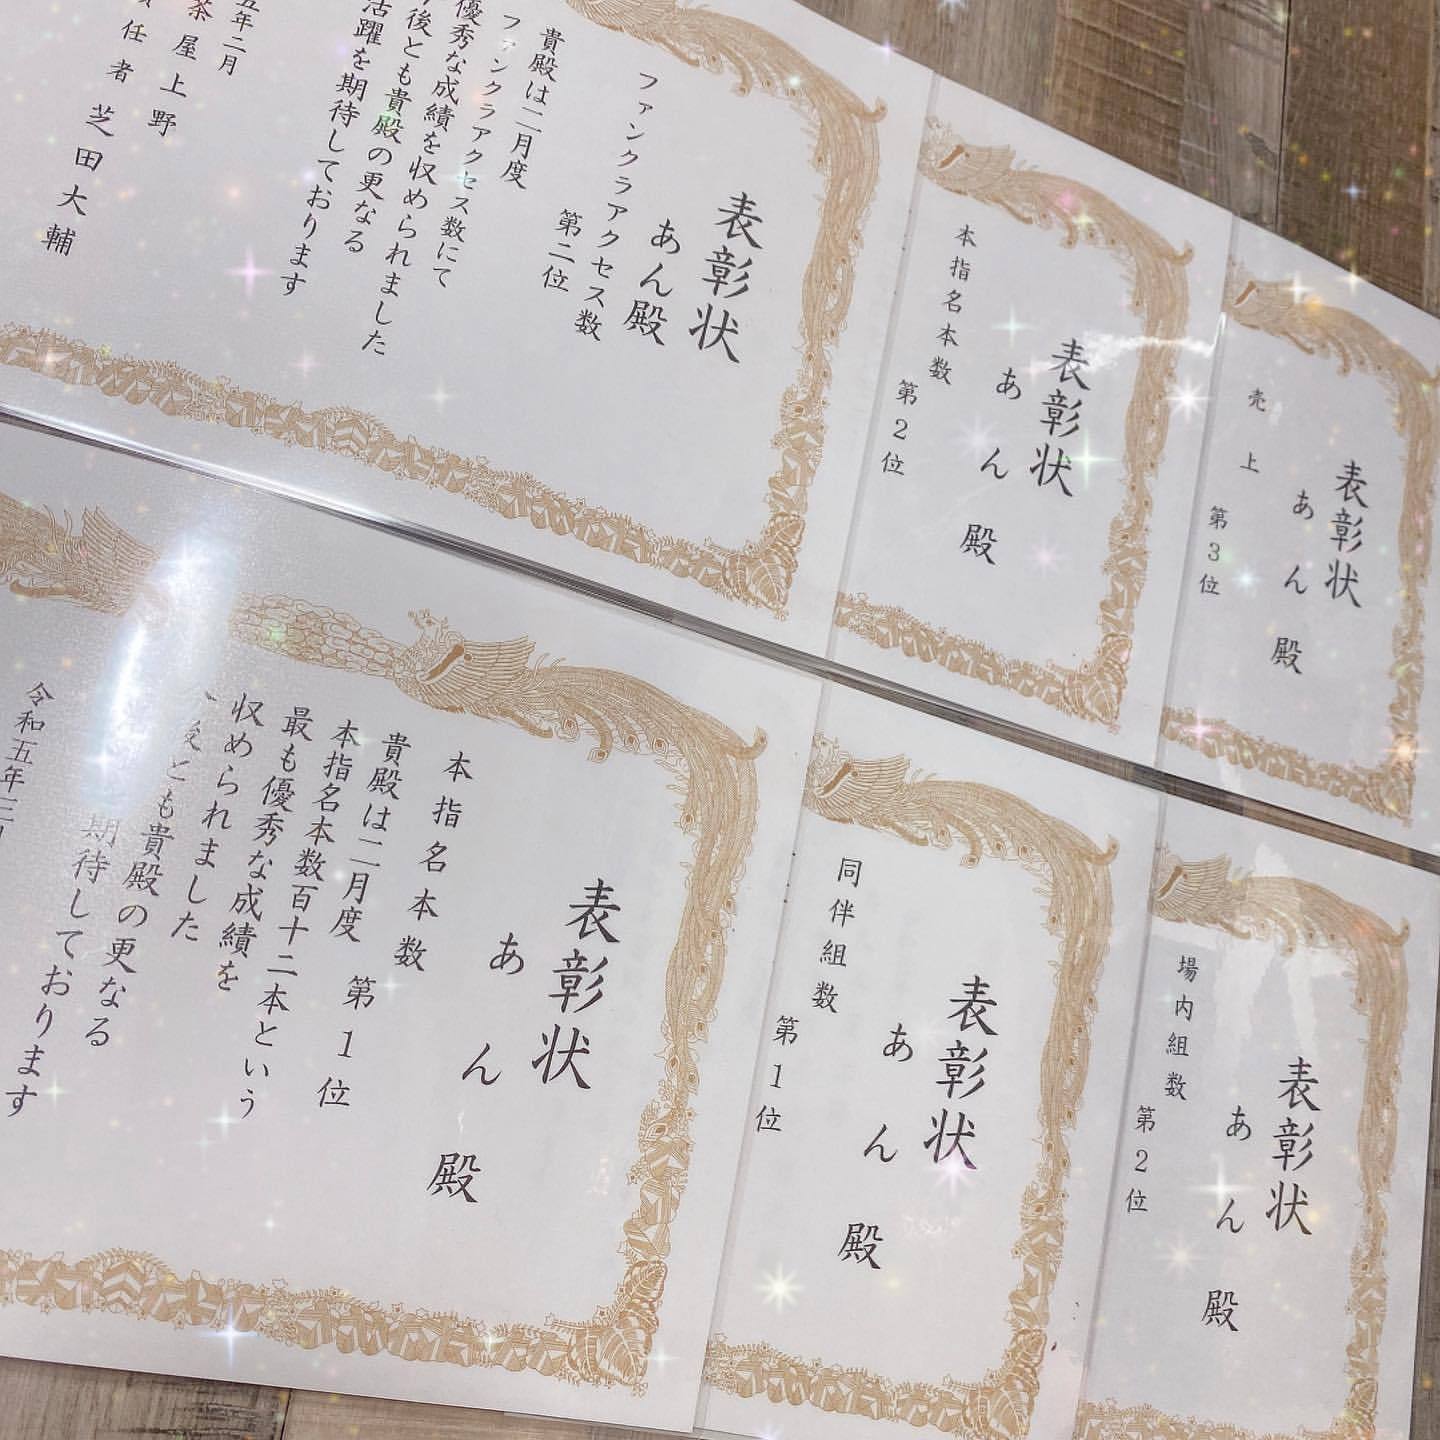 表彰状
あん殿
ファンクラアクセス数
第二位
貴殿は二月度
ファンクラアクセス数にて
優秀な成績を収められました
後とも貴殿の更なる
活躍を期待しております
五年二月
茶屋上野
任者 芝田大輔
表彰状
あん 殿
本指名本数
第2位
表彰状
あん 殿
売上 第3位
表彰状
あん 殿
本指名本数 第1位
貴殿は二月度
本指名本数百十二本という
最も優秀な成績を
収められました
とも貴殿の更なる
期待しております
令和五年三
表彰状
あん 殿
同伴組数
第1位
表彰状
あん 殿
場内組数
第2位